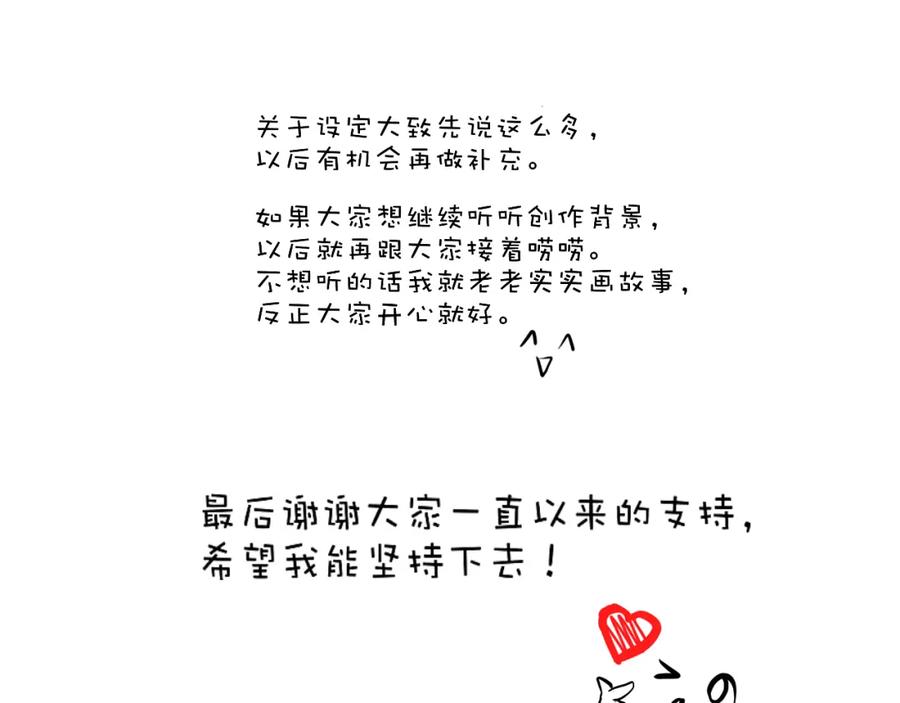 关于设定大致先说这么多，
以后有机会再做补充。
如果大家想继续听听创作背景，
以后就再跟大家接着唠唠。
不想听的话我就老老实实画故事，
反正大家开心就好。
最后谢谢大家一直以来的支持，
希望我能坚持下去！